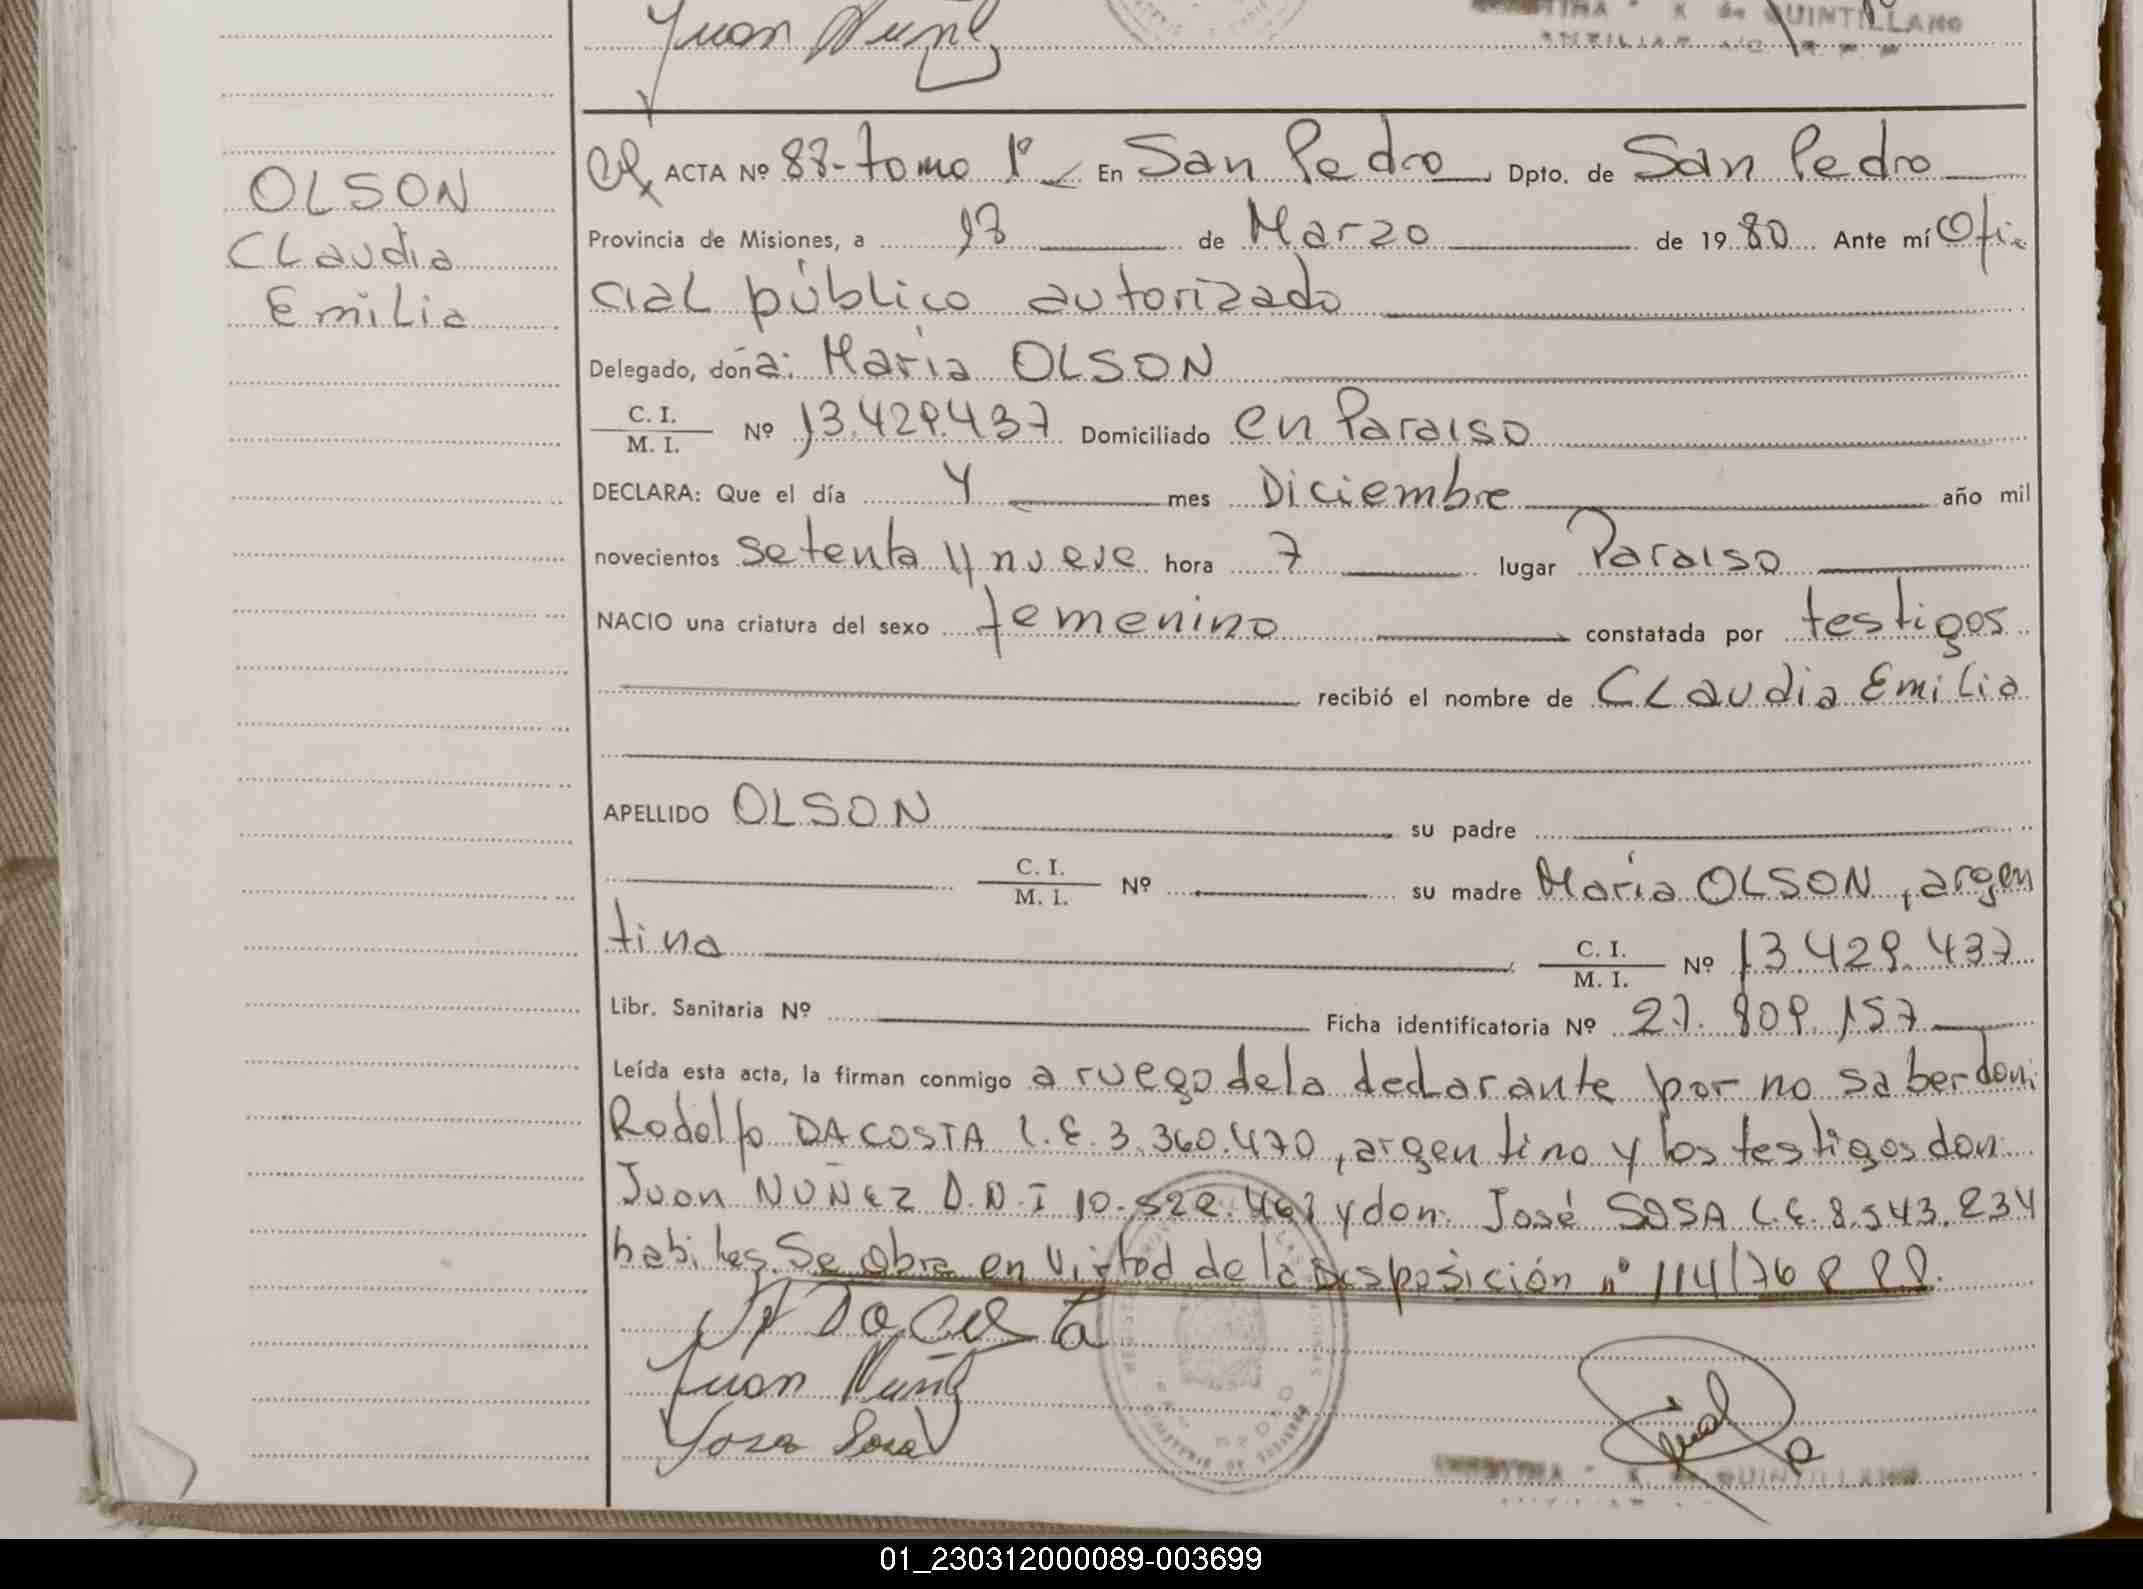 Juan Nuñez
QUINTILLANO
OLSON
Claudia
Emilia
ACTA Nº 88-tomo 1º En San Pedro Dpto. de San Pedro
Provincia de Misiones, a 13 de Marzo de 1980 Ante mí Ofi
cial público autorizado
Delegado, doña: María OLSON
C. I.
M. I. Nº 13.429.437 Domiciliado en Paraiso
DECLARA: Que el día 4 mes Diciembre año mil
novecientos setenta y nueve hora 7 lugar Paraiso
NACIO una criatura del sexo femenino constatada por testigos
recibió el nombre de Claudia Emilia
APELLIDO OLSON su padre
C. I.
M. I. Nº su madre María OLSON, argen
tina C. I.
M. I. Nº 13.429.437
Libr. Sanitaria Nº Ficha identificatoria Nº 27.809.157
Leída esta acta, la firman conmigo a ruego de la declarante por no saber don:
Rodolfo DACOSTA L.E. 3.360.470, argentino y los testigos don:
Juan NUÑEZ D.N.I y don: José SOSA L.E. 8.543.234
habiles. Se obra en virtud de la Disposición nº 114/76
Dacosta
Juan Nuñez
Jose Sosa
QUINTILLANO
01_230312000089-003699